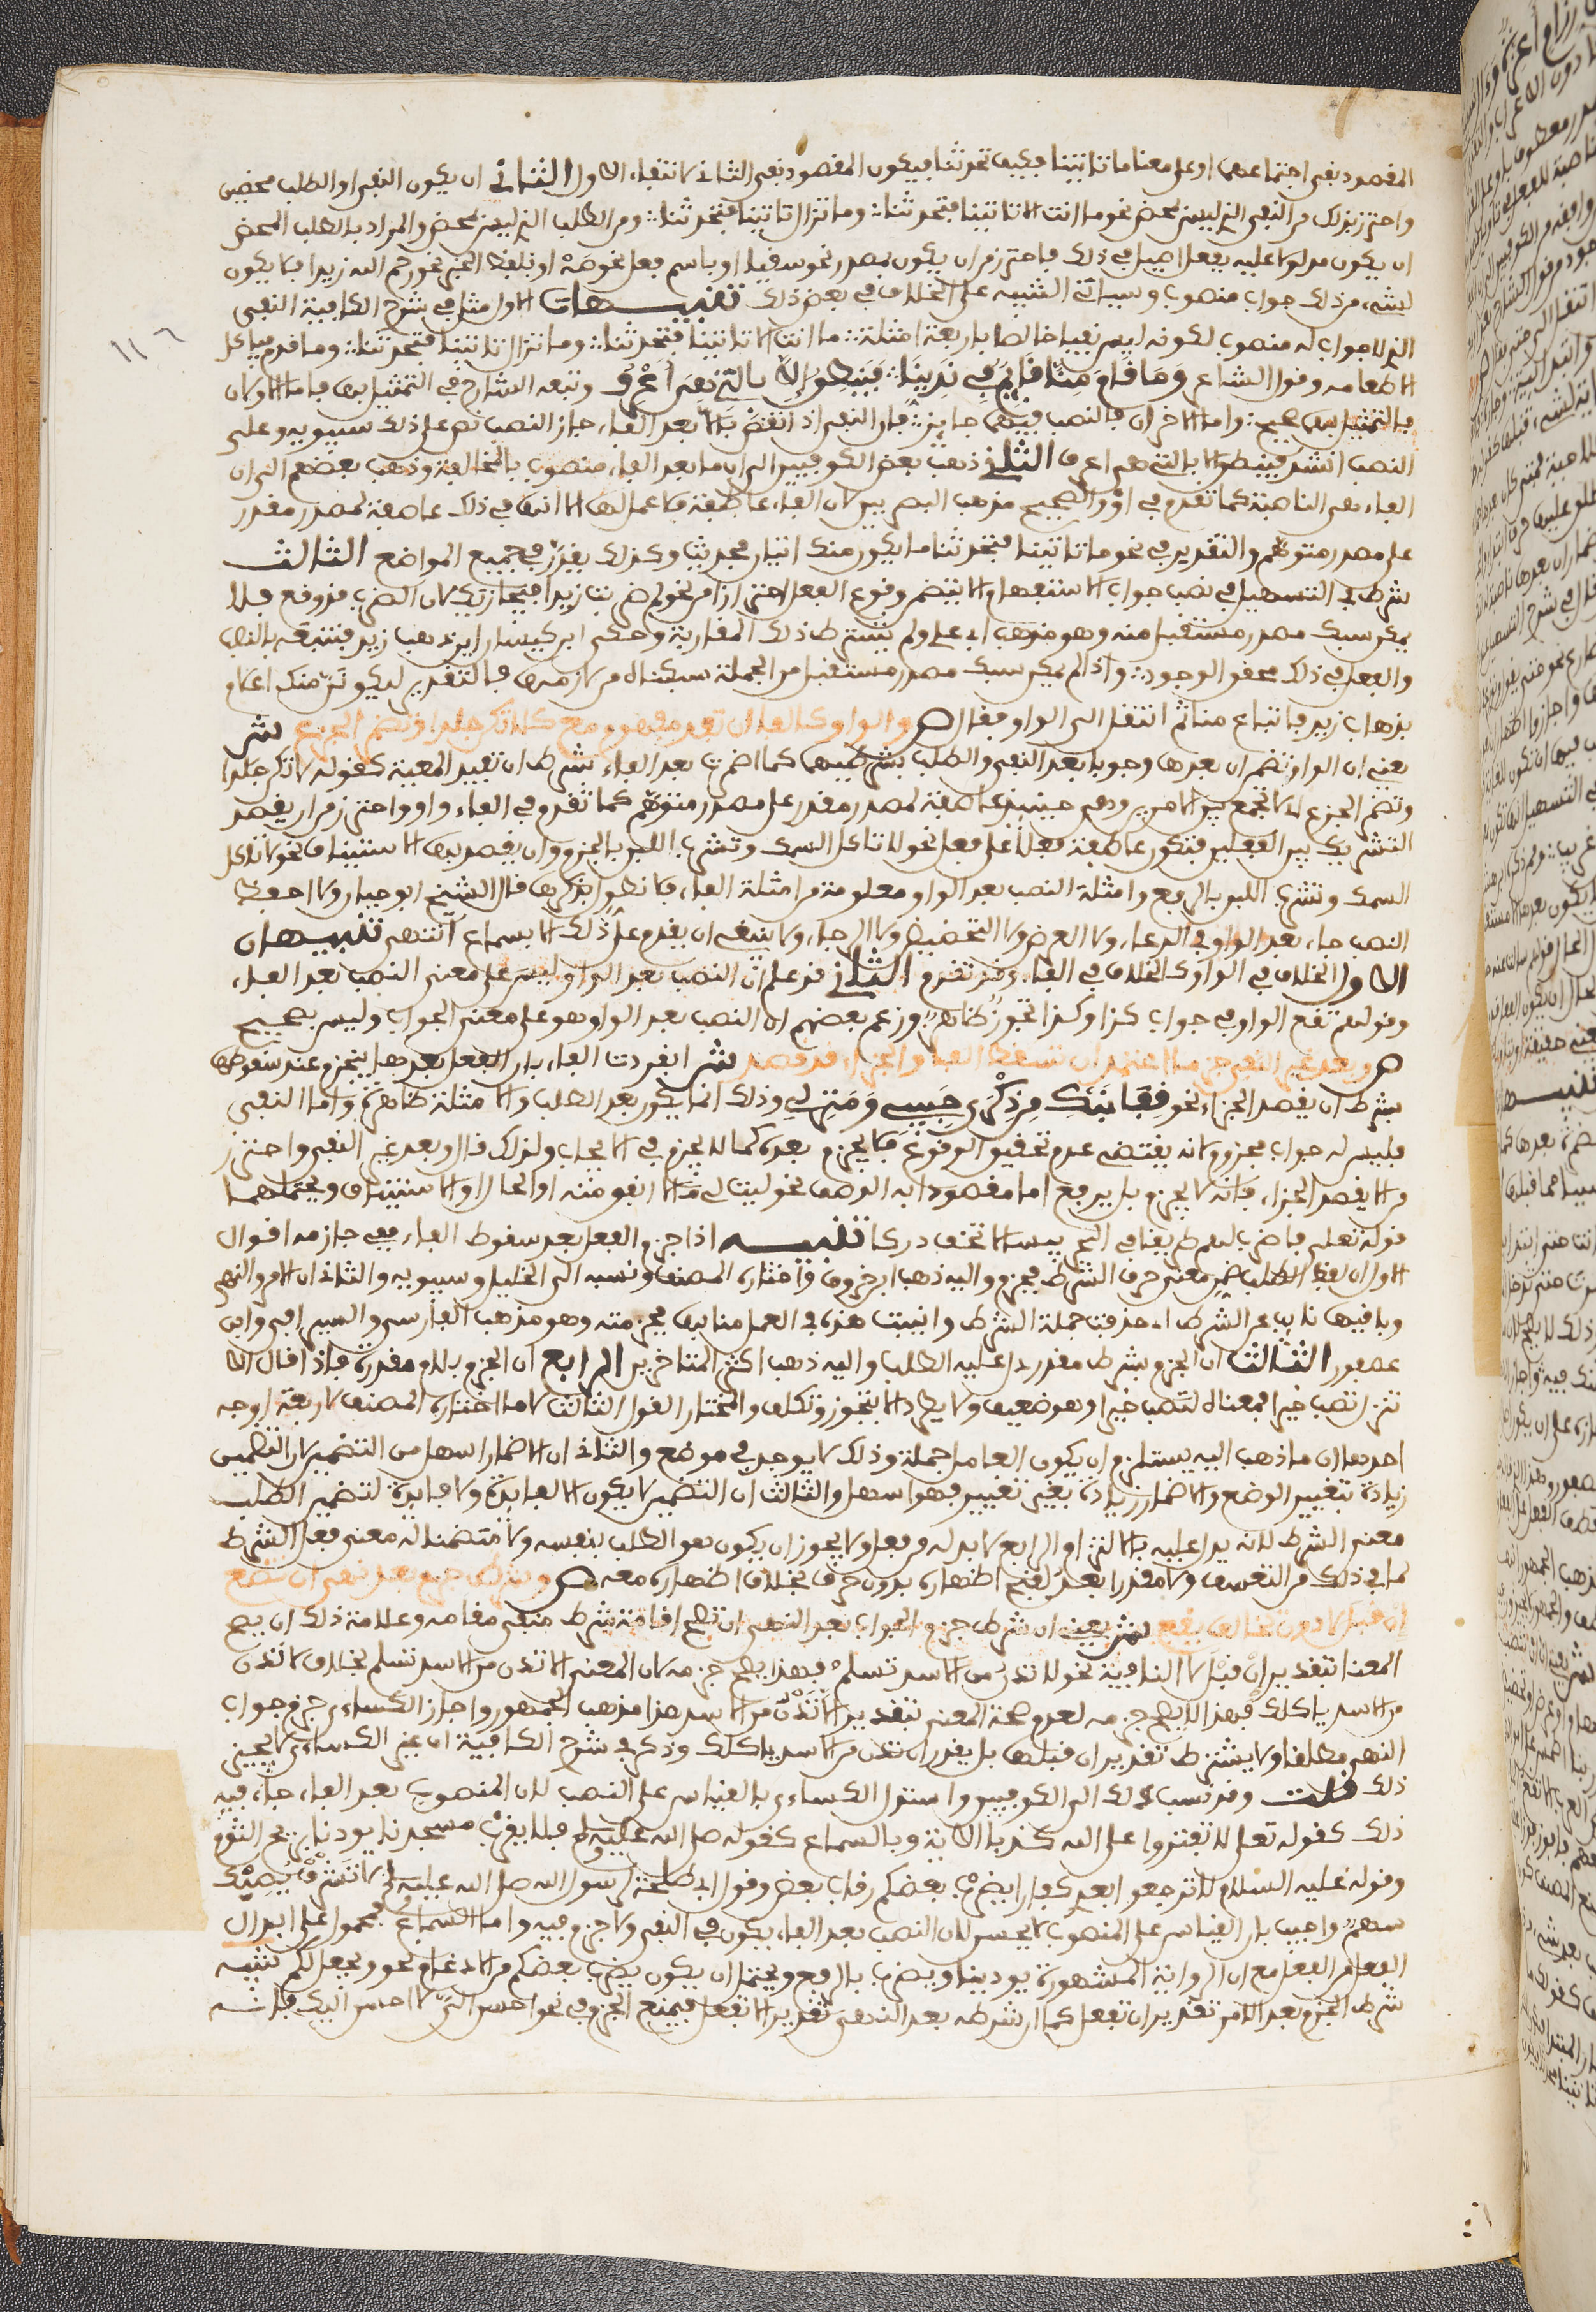 المقصود نفى اجتماعهما او على معنى ما تاتينا فكيف تحدثنا فيكون المقصود نفى الثانى لانتفاء الاول الثانى ان يكون النفى او الطلب محضين
واحترز بذلك من النفى الذى ليس بمحض نحو ما انت الا تاتينا فتحدثنا وما تزال تاتينا فتحدثنا ومن الطلب الذى ليس بمحض والمراد بالطلب المحض
ان يكون مدلولا عليه بفعل اصيل فى ذلك فاحترز من ان يكون بمصدر نحو سقيا او باسم فعل نحو صه او بلفظ الخبر نحو رحم الله زيدا فلا يكون
لشىء من ذلك جواب منصوب وسياتى التنبيه على الخلاف فى بعض ذلك تنبيهات الاول مثل فى شرح الكافية النفى
الذى لا جواب له منصوب لكونه ليس نفيا خالصا باربعة امثلة ما انت الا تاتينا فتحدثنا وما تزال تاتينا فتحدثنا وما قام فياكل
الا طعامه وقول الشاعر وما قام منا قائم فى ندينا فينطق الا بالتى هى اعرف وتبعه الشارح فى التمثيل بها فاما الاولان
فالتمثيل بهما صحيح واما الاخران فالنصب فيهما جايز فان النفى اذا انتقض بالا بعد الفاء جاز النصب نص على ذلك سيبويه وعلى
النصب انشد فينطق الا بالتى هى اعرف الثانى ذهب بعض الكوفيين الى ان ما بعد الفاء منصوب بالمخالفة وذهب بعضهم الى ان
الفاء هى الناصبة كما تقدم فى او والصحيح مذهب البصريين لان الفاء عاطفة فلا عمل لها الا انها فى ذلك عاطفة لمصدر مقدر
على مصدر متوهم والتقدير فى نحو ما تاتينا فتحدثنا ما يكون منك اتيان فحديث وكذلك يقدر فى جميع المواضع الثالث
شرط فى التسهيل فى نصب جواب الاستفهام الا يتضمن وقوع الفعل احترازا من نحو لم ضربت زيدا فيجازيك لان الضرب قد وقع فلا
يمكن سبك مصدر مستقبل منه وهو مذهب ابى على ولم يشترط ذلك المغاربة وحكى ابن كيسان اين ذهب زيد فنتبعه بالنصب
والفعل فى ذلك محقق الوجود واذا لم يمكن سبك مصدر مستقبل من الجملة سبكناه من لازمها فالتقدير ليكن منك اعلام
بذهاب زيد فاتباع منا ثم انتقل الى الواو فقال ص والواو كالفا ان تفد مفهوم مع كلا تكن جلدا وتظهر الجزع ش
يعنى ان الواو تضمر ان بعدها وجوبا بعد النفى والطلب بشرطيهما كما اضمرت بعد الفاء بشرط ان تفيد المعية كقوله لا تكن جلدا
وتظهر الجزع اى لا تجمع بين الامرين وهى حينئذ عاطفة لمصدر مقدر على مصدر متوهم كما تقدم فى الفاء واو واحترز من ان يقصد
التشريك بين الفعلين فتكون عاطفة فعلا على فعل نحو لا تاكل السمك وتشرب اللبن بالجزم وان يقصد بها الاستيناف نحو لا تاكل
السمك وتشرب اللبن بالرفع وامثلة النصب بعد الواو معلومة من امثلة الفاء فلا نطول بذكرها قال الشيخ ابو حيان ولا احفظ
النصب جاء بعد الواو فى الدعاء ولا العرض ولا التحضيض ولا الرجاء ولا ينبغى ان يقدم على ذلك الا بسماع انتهى تنبيهان
الاول الخلاف فى الواو كالخلاف فى الفاء وقد تقدم الثانى قد علم ان النصب بعد الواو ليس على معنى النصب بعد الفاء
وقولهم تقع الواو فى جواب كذا وكذا تجوز ظاهر وزعم بعضهم ان النصب بعد الواو هو على معنى الجواب وليس بصحيح
ص وبعد غير النفى جزما اعتمد ان تسقط الفا والجزاء قد قصد ش انفردت الفاء بان الفعل بعدها ينجزم عند سقوطها
بشرط ان يقصد الجزاء نحو قفا نبك من ذكرى حبيب ومنزل وذلك انما يكون بعد الطلب والامثلة ظاهرة واما النفى
فليس له جواب مجزوم لانه يقتضى عدم تحقيق الوقوع فلا يجزم بعده كما لا يجزم فى الايجاب ولذلك قال وبعد غير النفى واحترز
من الا يقصد الجزاء فانه لا يجزم بل يرفع اما مقصودا به الوصف نحو ليت لى مالا انفق منه او الحال او الاستيناف ويحتملهما
قوله تعلى فاضرب لهم طريقا فى البحر يبسا لا تخف دركا تنبيه اذا جزم الفعل بعد سقوط الفاء ففى جازمه اقوال
الاول ان لفظ الطلب ضمن معنى حرف الشرط فجزم واليه ذهب ابن خروف واختاره المصنف ونسبه الى الخليل وسيبويه والثانى ان الامر والنهى
وباقيها نابت عن الشرط اى حذفت جملة الشرط وانيبت هذه فى العمل منابها فجزمته وهو مذهب الفارسى والسيرافى وابن
عصفور الثالث ان الجزم بشرط مقدر دل عليه الطلب واليه ذهب اكثر المتاخرين الرابع ان الجزم بلام مقدرة فاذا قال الا
تنزل تصب خيرا فمعناه لتصب خيرا وهو ضعيف ولا يطرد الا بتجوز وتكلف والمختار القول الثالث لا ما اختاره المصنف لاربعة اوجه
احدها ان ما ذهب اليه يستلزم ان يكون العامل جملة وذلك لا يوجد فى موضع والثانى ان الاضمار اسهل من التضمين لان التضمين
زيادة بتغيير الوضع والاضمار زيادة بغير تغيير فهو اسهل والثالث ان التضمين لا يكون الا لفايدة ولا فايدة لتضمين الطلب
معنى الشرط لانه يدل عليه بالالتزام والرابع لا بد له من فعل ولا يجوز ان يكون هو الطلب بنفسه ولا متضمنا له معنى فعل الشرط
لما فى ذلك من التعسف ولا مقدرا بعده لقبح اظهاره بدون حرف بخلاف اظهاره معه ص وشرط جزم بعد نهى ان تضع
ان قبل لا دون تخالف يقع ش يعنى ان شرط جزم الجواب بعد النهى ان تصح اقامة شرط منفى مقامه وعلامة ذلك ان يصح
المعنى بتقدير ان قبل لا النافية نحو لا تدن من الاسد تسلم فهذا يصح جزمه لان المعنى الا تدن من الاسد تسلم بخلاف لا تدن
من الاسد ياكلك فهذا لا يصح جزمه لعدم صحة المعنى بتقدير الا تدن من الاسد هذا مذهب الجمهور واجاز الكساءى جزم جواب
النهى مطلقا ولا يشترط تقدير ان قبلها بل يقدر ان تدن من الاسد ياكلك وذكر فى شرح الكافية ان غير الكساءى لا يجيز
ذلك قلت وقد نسب ذلك الى الكوفيين واستدل الكساءى بالقياس على النصب لان المنصوب بعد الفاء جاء فيه
ذلك كقوله تعلى لا تفتروا على الله كذبا الاية وبالسماع كقوله صلى الله عليه وسلم فلا يقرب مسجدنا يوذنا بريح الثوم
وقوله عليه السلام لا ترجعوا بعدى كفارا يضرب بعضكم رقاب بعض وقول ابى طلحة لرسول الله صلى الله عليه وسلم لا تشرف يصبك
سهم واجيب بان القياس على المنصوب لا يحسن لان النصب بعد الفاء يكون فى النفى ولا جزم فيه واما السماع فمحمول على ابدال
الفعل من الفعل مع ان الرواية المشهورة يوذينا ويضرب بالرفع ويحتمل ان يكون يضرب بعضكم من الادغام نحو ويجعل لكم تنبيه
شرط الجزم بعد الامر تقدير ان تفعل كما ان شرطه بعد النهى تقدير الا تفعل فيمتنع الجزم فى نحو احسن الى لا احسن اليك فانه